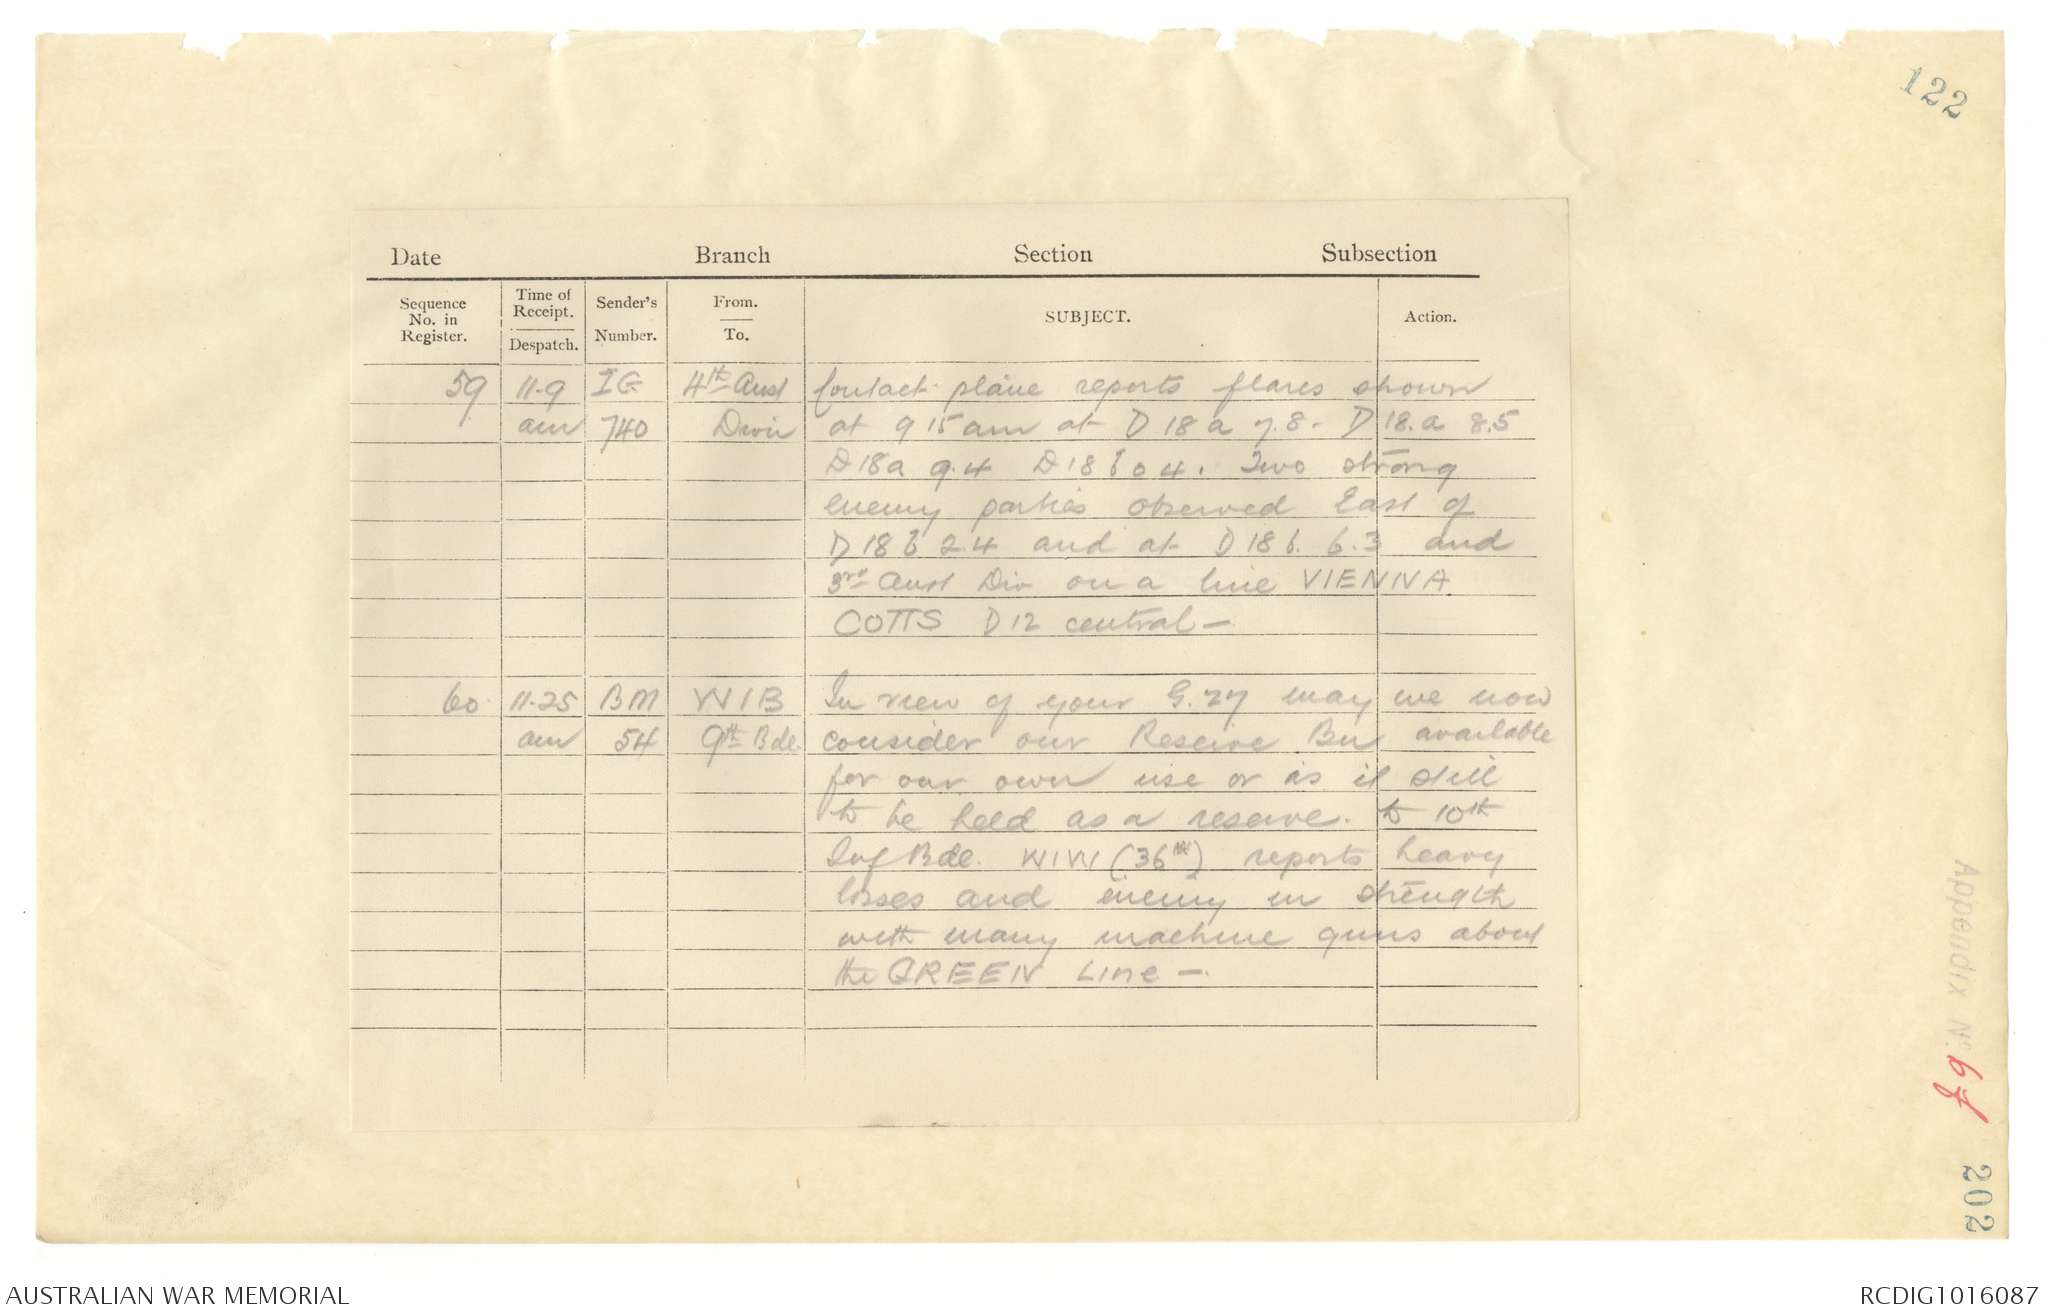 122
Date Branch Section Subsection
Sequence No. in Register. Time of Receipt. Despatch. Sender's Number. From. To. SUBJECT. Action.
59 11.9 IG 4th Aust Contact plane reports flares shown
am 740 Divn at 9 15 am at D 18 a 7.8. D 18.a 8.5
D18a 9.4 D18 b 0 4. Two strong
enemy parties observed East of
D 18 b 2.4 and at D 18 b. 6.3 and
3rd Aust Div on a line VIENNA
COTTS D 12 central —
60 11.25 BM WIB In view of your G.77 may we now
am 54 9th Bde. consider our Reserve Bn available
for our own use or is it still
to be held as a reserve. to 10th
Inf Bde. WIW (36th) reports heavy
losses and enemy in strength
with many machine guns about
the GREEN Line —.
Appendix No.
202
AUSTRALIAN WAR MEMORIAL RCDIG1016087